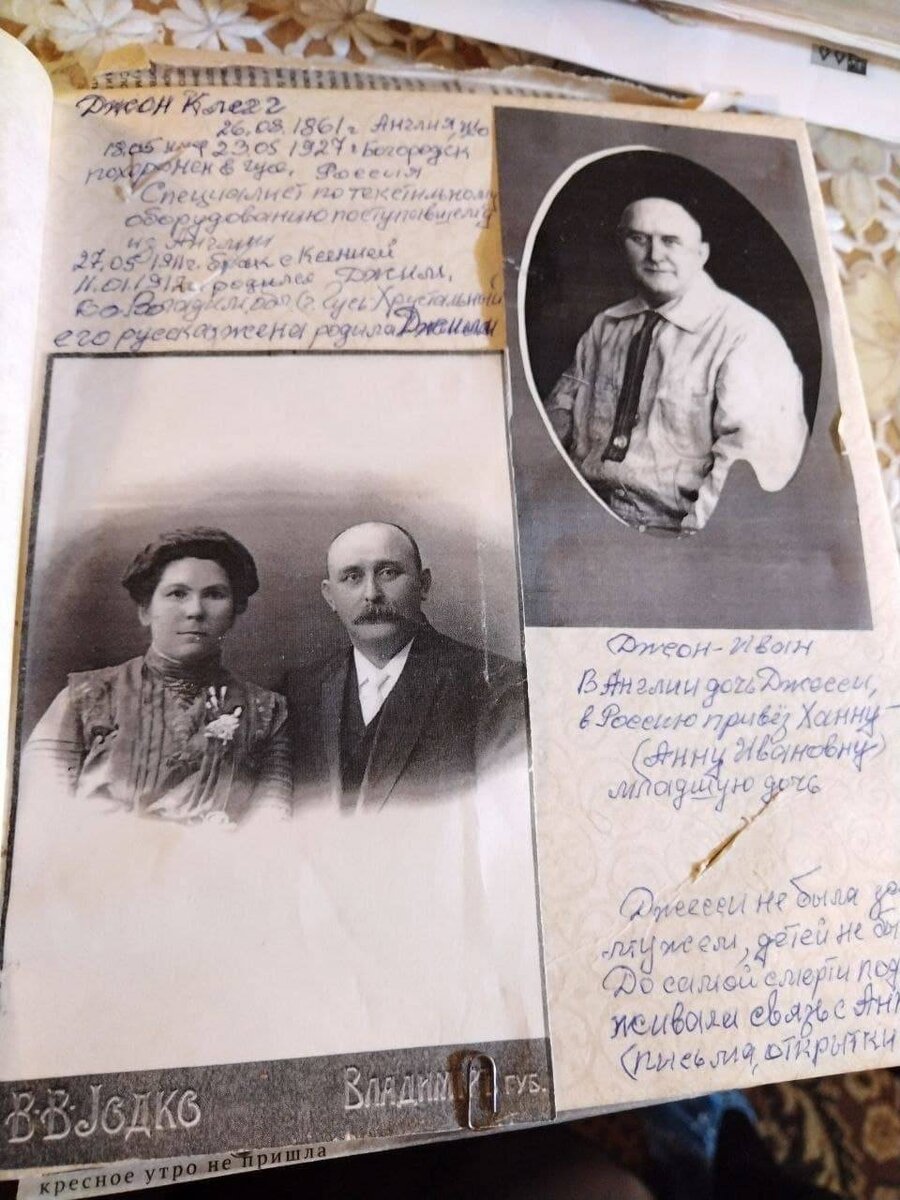 Джон Клегг
26.08.1861г Англия
18.05 23.05 1927г Богородск
похоронен в Россия
Специалист по текстильному
оборудованию поступавшему
из Англии
27.05 1911г. брак с Ксенией
11.01.1912г. родился Джим,
во Владим. обл (г. Гусь-Хрустальный
его русская жена родила
Джон-Иван
В Англии дочь Джесси,
в Россию привёз Ханну-
(Анну Ивановну)
младшую дочь
Джесси не была за
мужем, детей не бы
До самой смерти под
живали связь с Ан
(письма, открытки
В·В·Іодко Владим губ.
кресное утро не пришла